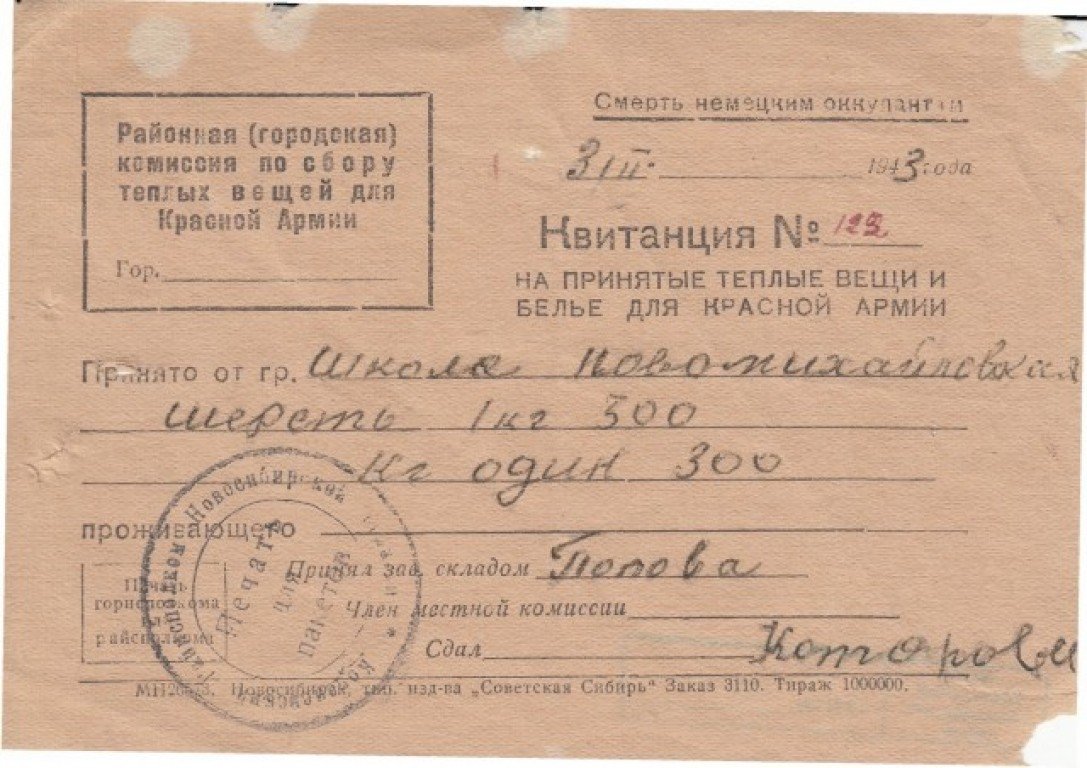 Районная (городская)
комиссия по сбору
теплых вещей для
Красной Армии
Гор.
Смерть немецким оккупантам
3/II. 1943 года
Квитанция № 123
НА ПРИНЯТЫЕ ТЕПЛЫЕ ВЕЩИ И
БЕЛЬЕ ДЛЯ КРАСНОЙ АРМИИ
Принято от гр. Школа Новомихайловская
шерсть 1 кг 300
кг один 300
проживающего
Принял зав. складом Попова
Член местной комиссии
Сдал
Печать
горисполкома
или
райсполкома
Новосибирской
Печать
для
пакетов
МН20573. Новосибирск, тип. изд-ва „Советская Сибирь“ Заказ 3110. Тираж 1000000.